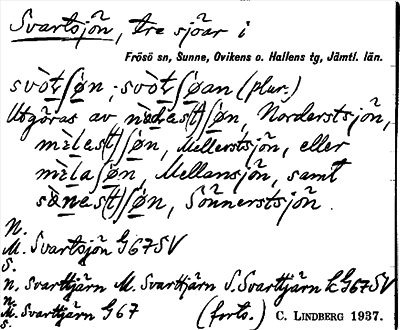 Svartsjön, tre sjöar i
Frösö sn, Sunne, Ovikens o. Hallens tg, Jämtl. län.
svòt∫øn; svòt∫øan (plur.)
Utgöras av Norderstsjön,
mèlest∫øn, Mellerstsjön, eller
mèla∫øn, Mellansjön, samt
Sönnerstsjön.
N.
M. Svartsjön G67SV
S.
N. Svarttjärn M. Svarttjärn S. Svarttjärn k G67SV
N.
M. Svarttjärn G67 (forts.) C. LINDBERG 1937.
S.